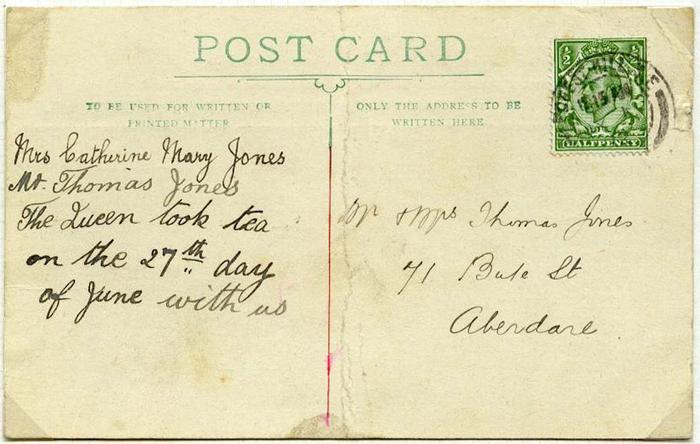 POST CARD
TO BE USED FOR WRITTEN OR
PRINTED MATTER
ONLY THE ADDRESS TO BE
WRITTEN HERE.
½ ½
HALFPENNY
Mrs Catherine Mary Jones
Mr. Thomas Jones
The Queen took tea
on the 27th day
of June with us
Mr & Mrs Thomas Jones
71 Bute St
Aberdare